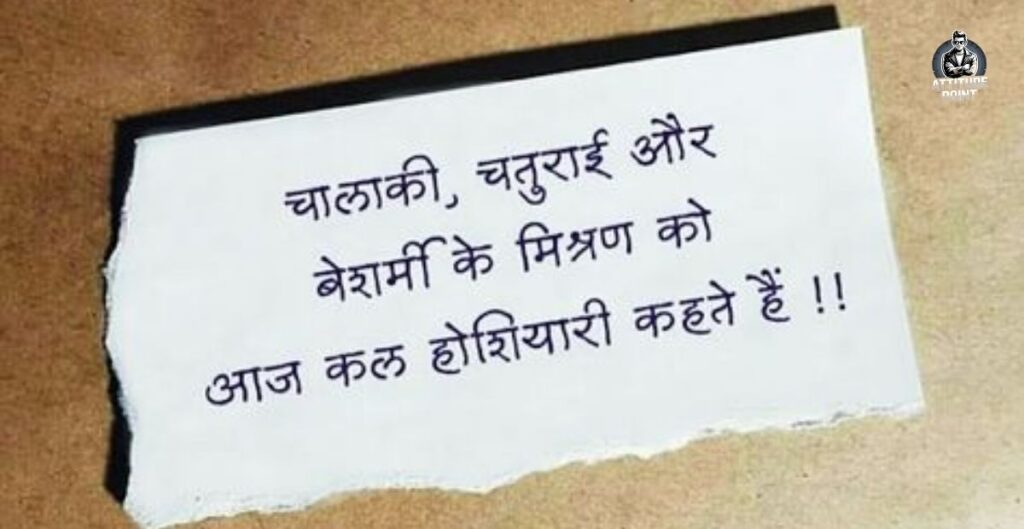 ATTITUDE
POINT
चालाकी, चतुराई और
बेशर्मी के मिश्रण को
आज कल होशियारी कहते हैं !!